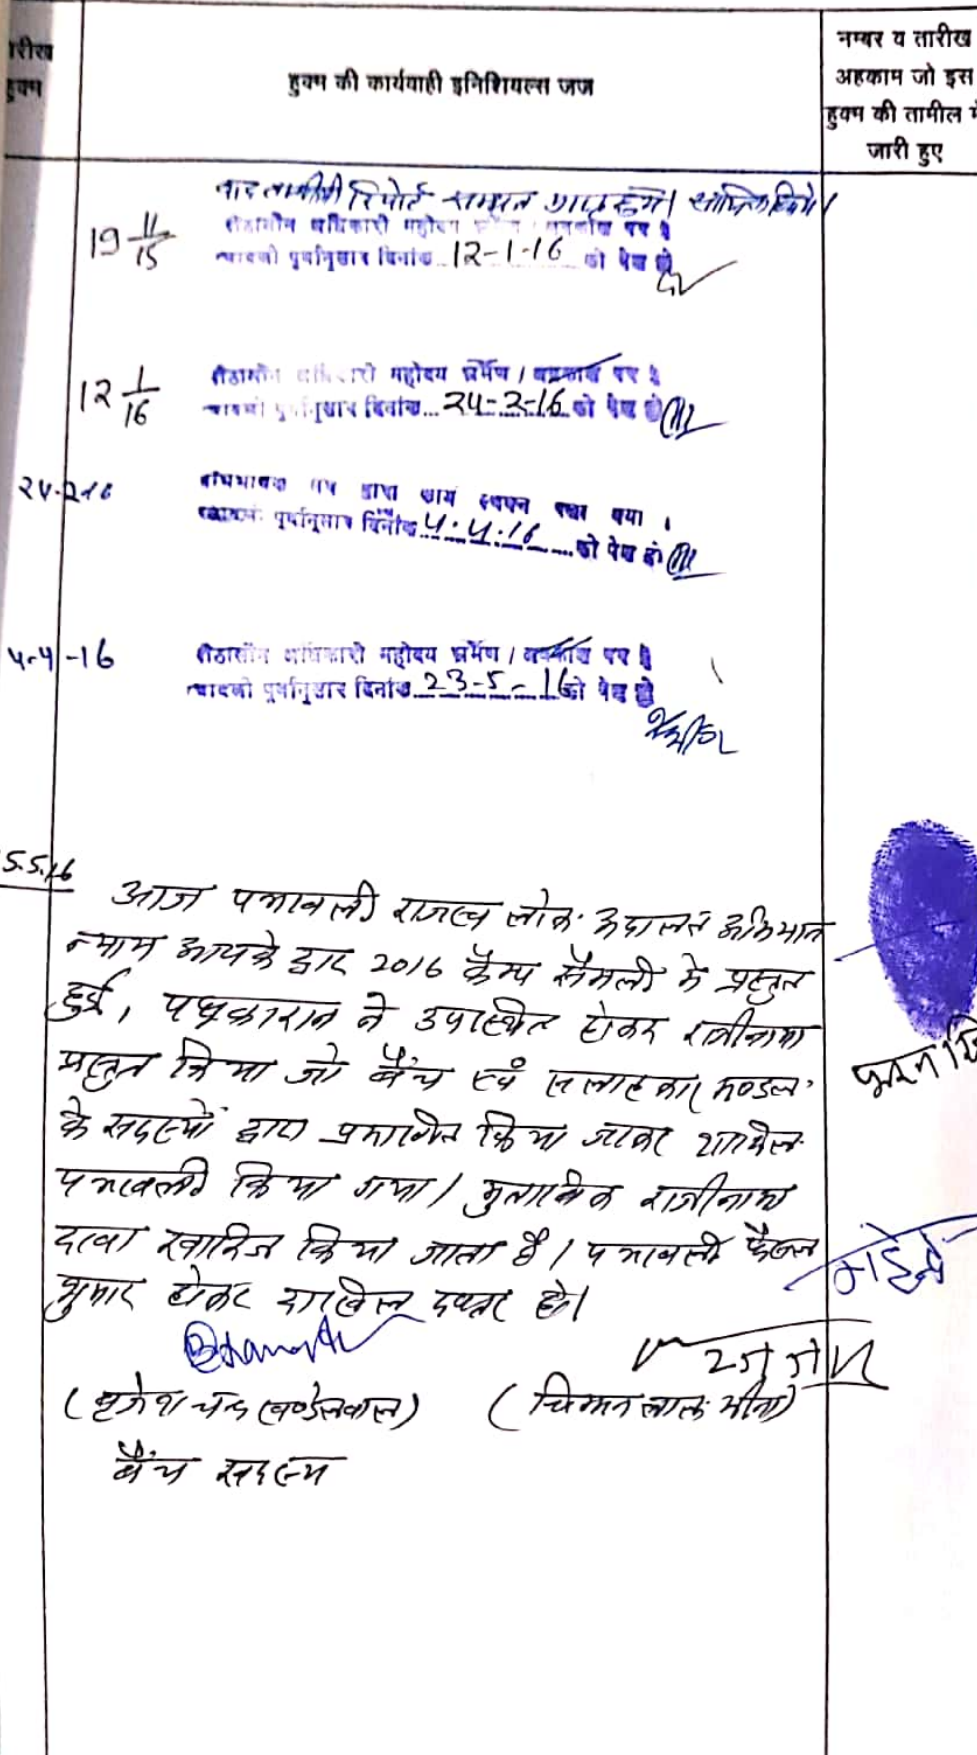 तारीख
हुक्म
हुक्म की कार्यवाही इनिशियल्स जज
नम्बर व तारीख
अहकाम जो इस
हुक्म की तामील में
जारी हुए
19 11/15
बाद तामीली रिपोर्ट सम्मन प्राप्त हुये।
पीठासीन अधिकारी महोदय पर है
पत्रावली पूर्वानुसार दिनांक 12-1-16 को पेश हो
12 1/16
पीठासीन अधिकारी महोदय भ्रमण / अवकाश पर है
पत्रावली पूर्वानुसार दिनांक 24-2-16 को पेश हो
24-2-16
अभिभाषक संघ द्वारा कार्य स्थगन रखा गया ।
पत्रावली पूर्वानुसार दिनांक 4.4.16 को पेश हो
4-4-16
पीठासीन अधिकारी महोदय भ्रमण / अवकाश पर है
पत्रावली पूर्वानुसार दिनांक 23-5-16 को पेश हो
5.5.16
आज पत्रावली राजस्व लोक अदालत अभियान
न्याय आपके द्वार 2016 कैम्प सैमली मे प्रस्तुत
हुई, पक्षकारान ने उपस्थित होकर राजीनामा
प्रस्तुत किया जो बैंच एवं सलाहकार मण्डल
के सदस्यों द्वारा प्रमाणित किया जाकर शामिल
पत्रावली किया गया। मुताबिक राजीनामा
दावा खारिज किया जाता है। पत्रावली फैसल
शुमार होकर दाखिल दफ्तर हो।
(बृजेश चन्द खण्डेलवाल) (चिमन लाल मीना)
बैंच सदस्य